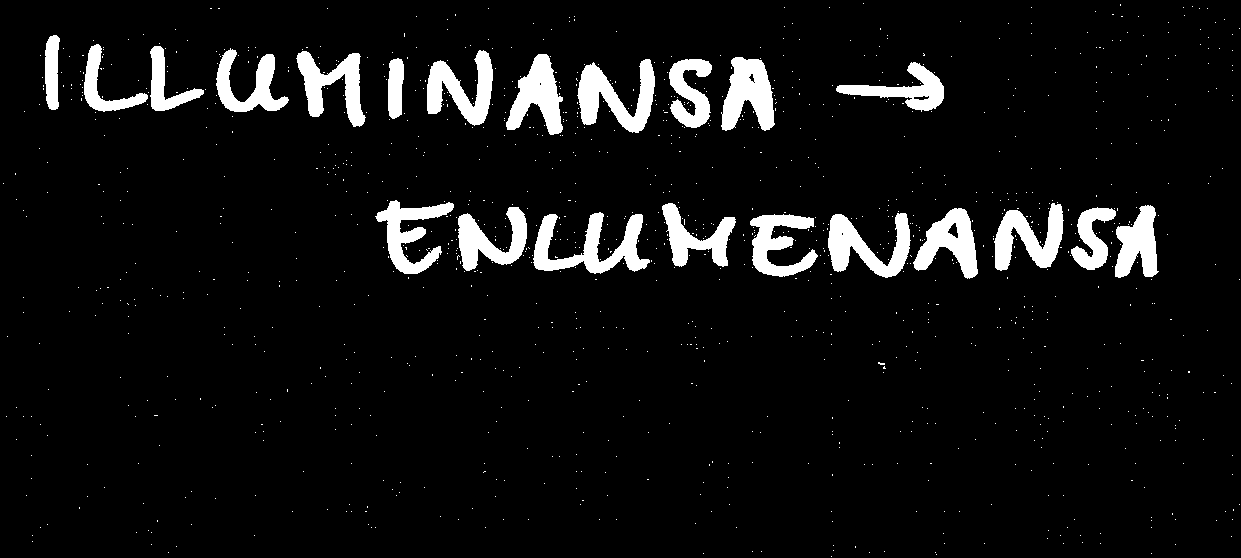 ILLUMINANSA →
ENLUMENANSA